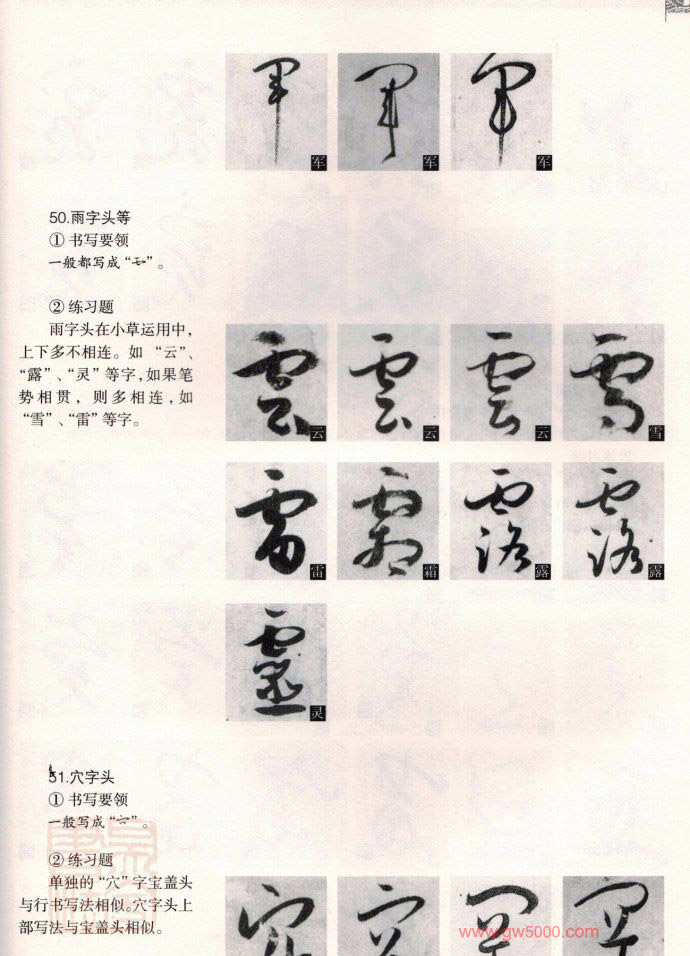 军 军 军
50.雨字头等
① 书写要领
一般都写成“ ”。
② 练习题
雨字头在小草运用中，
上下多不相连。如 “云”、
“露”、“灵”等字，如果笔
势相贯，则多相连，如
“雪”、“雷”等字。
云 云 云 雪
雷 霜 露 露
灵
51.穴字头
① 书写要领
一般写成“ ”。
② 练习题
单独的“穴”字宝盖头
与行书写法相似。穴字头上
部写法与宝盖头相似。
www.gw5000.com